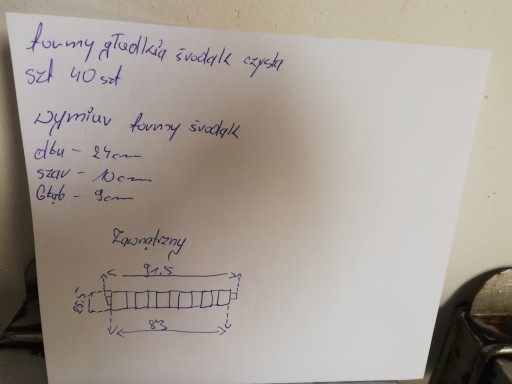 formy gładkia środąk czysta
szt 40 szt
wymiar formy środąk
dłu - 24cm
szar - 10cm
Głąb - 9cm
Zawnątrzny
91.5
83